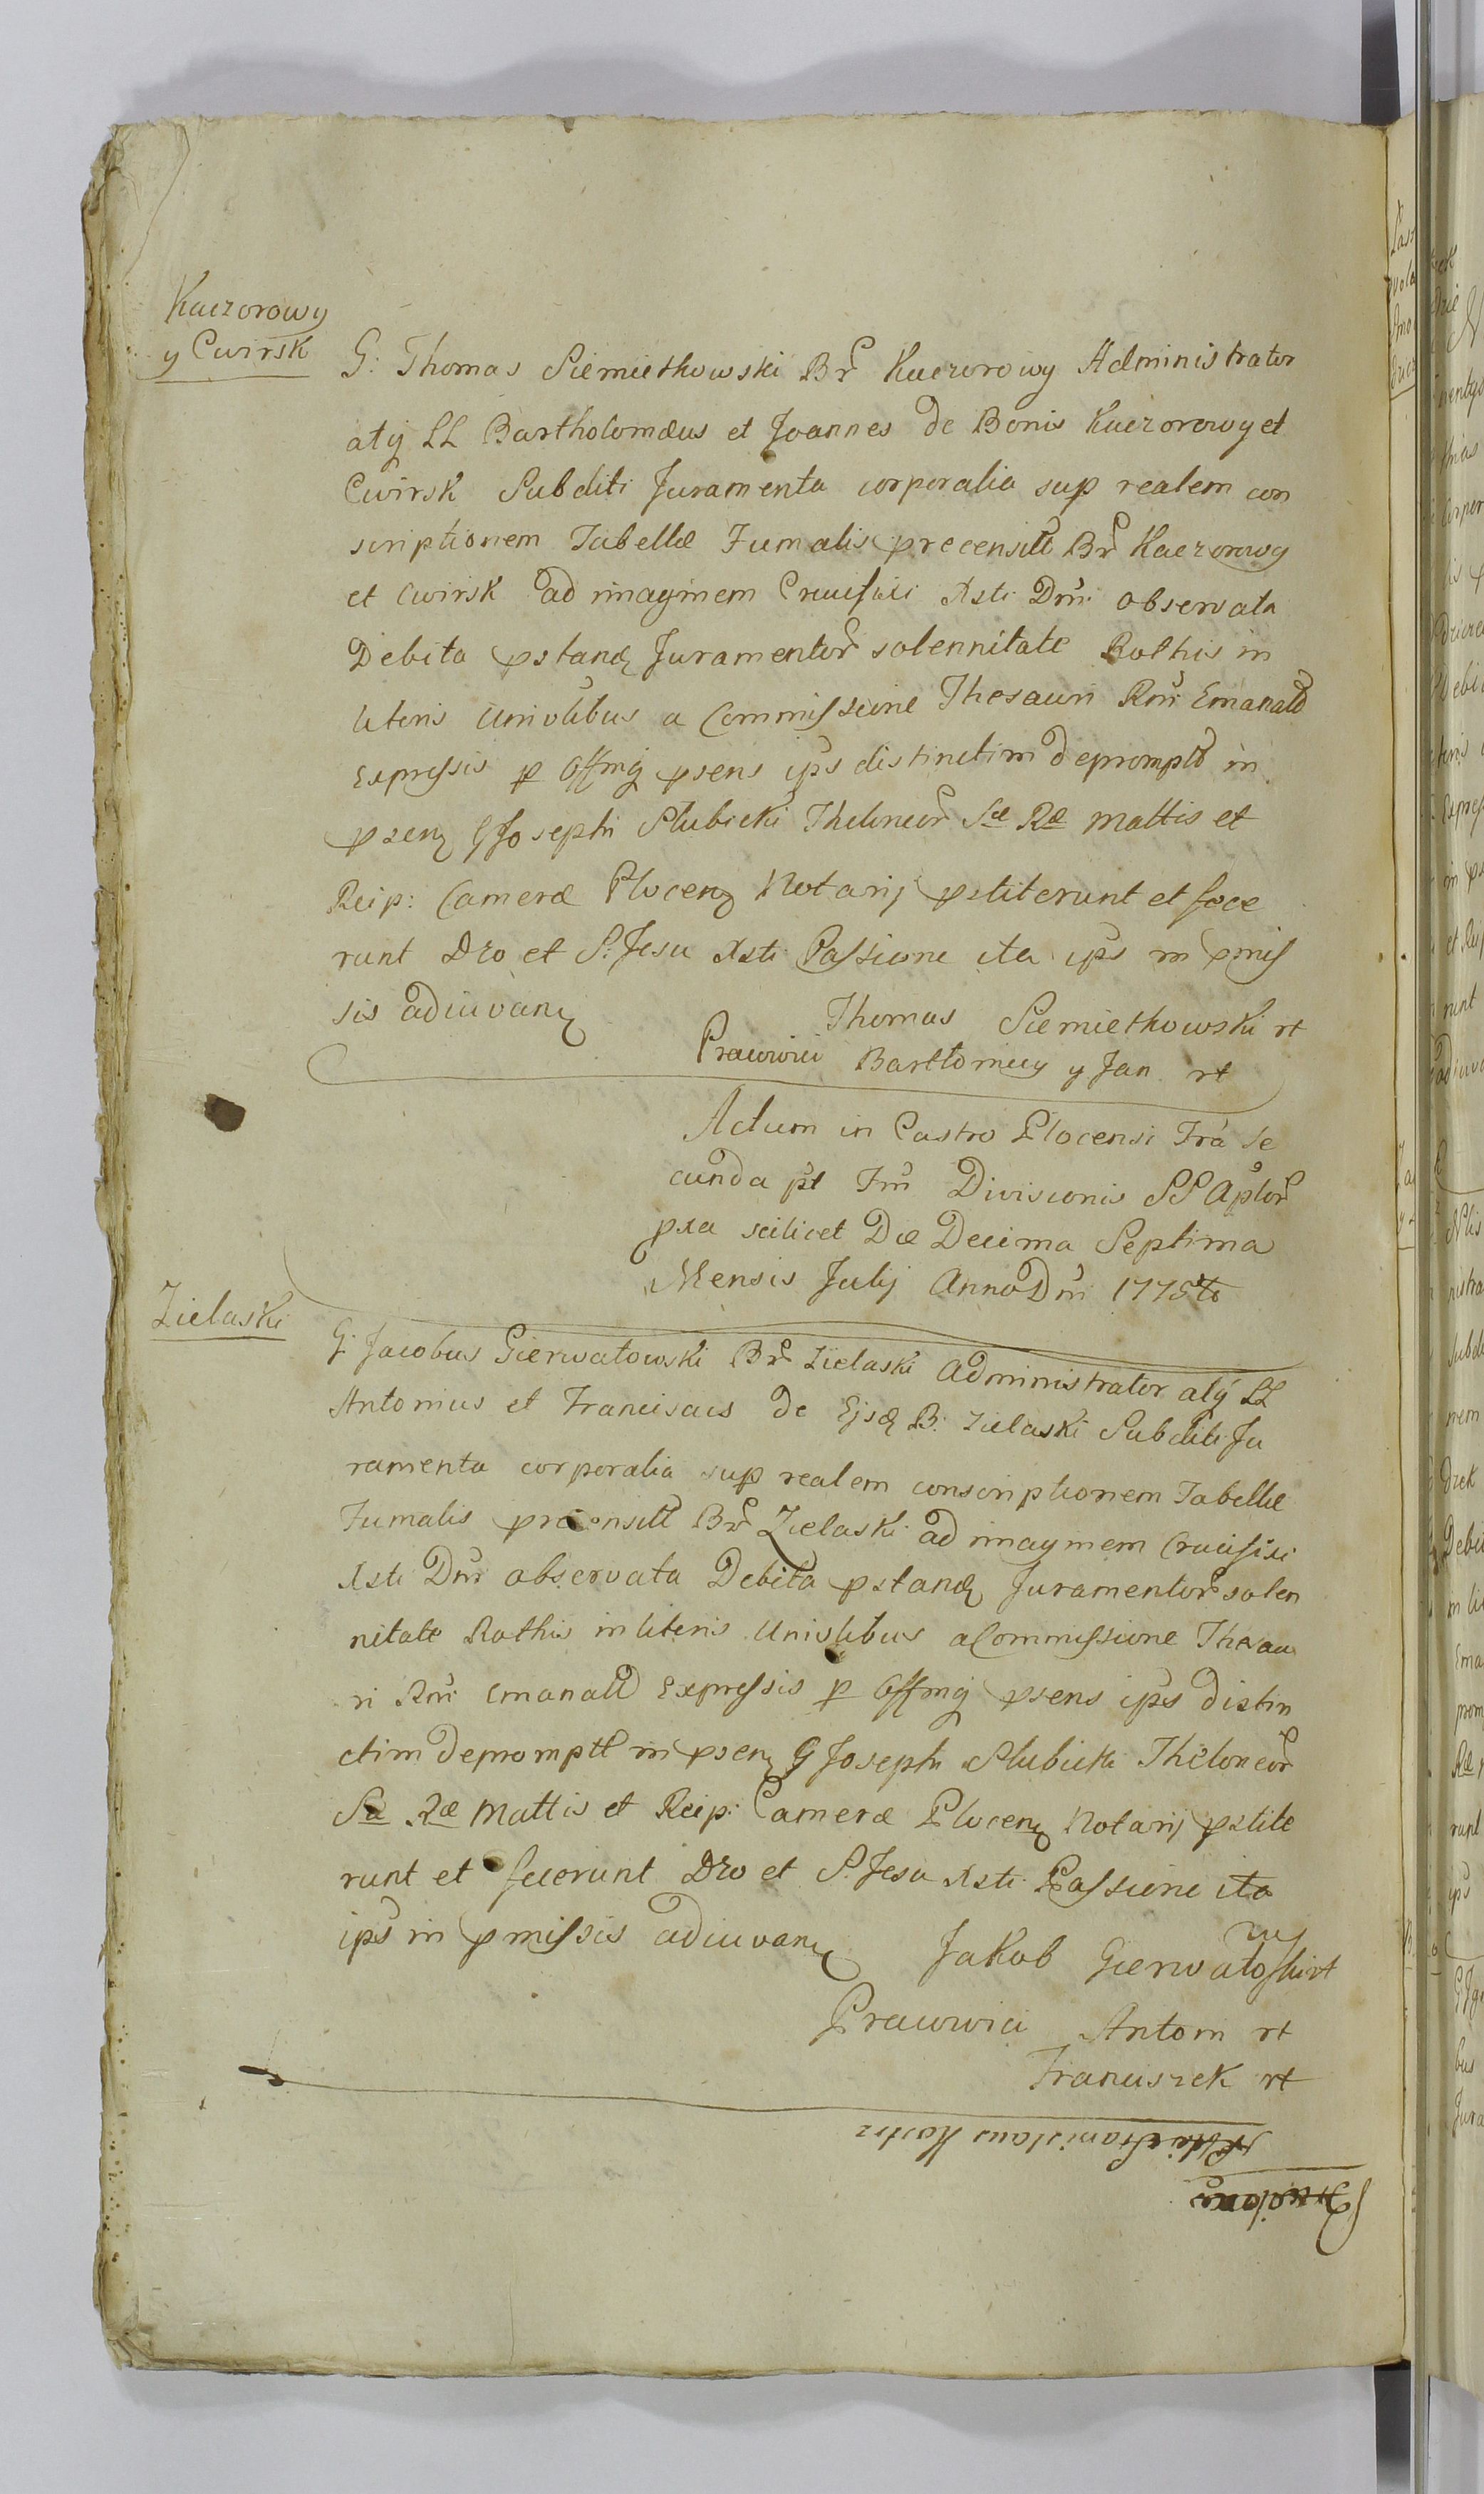 Kaczorowy
y Cwirsk
G: Thomas Siemiethowski Br Kaczorowy Administrator
atq LL Bartholomæus et Joannes de Bonis Kaczorowy et
Cwirsk Subditi Juramenta corporalia sup realem con
scriptionem Tabellæ Fumalis precensitt Br Kaczorowy
et Cwirsk ad imaginem Crucifixi Xsti Dni observata
Debita pstand Juramentor solennitate Rothis in
literis Universlibus a Commissione Thesauri Rni Emanatt
Expressis p Offing psens ips distinctim deprompt in
psen G Josephi Slubicki Theloneor Sæ Ræ Mattis et
Reip: Cameræ Plocen Notarij pstiterunt et fece
runt Dro et S. Jesu Xsti Passione ita ips in pmis
sis adiuvan
Thomas Siemiethowski rt
Pracowici Bartlomiey y Jan rt
Actum in Castro Plocensi Fra Se
cunda pt Fm Divisionis SS Aplor
pxa scilicet Die Decima Septima
Mensis Julij Anno Dni 1775to
Zielaski
G: Jacobus Gierwatowski Br Zielaski Administrator atq LL
Antonius et Franciscus de Ejsd B: Zielaski Subditi Ju
ramenta corporalia sup realem conscriptionem Tabellæ
Fumalis precensitt Br Zielaski ad imaginem Crucifixi
Xsti Dni observata Debita pstand Juramentor solen
nitate Rothis in literis Universlibus a Commissione Thesau
ri Rni Emanatt Expressis p Offing psens ips distin
ctim depromptt in psen G Josephi Slubicki Theloneor
Sæ Ræ Mattis et Reip: Cameræ Plocen Notarij pstite
runt et fecerunt Dro et S. Jesu Xsti Passione ita
ips in pmissis adiuvan
Jakob Gierwatowski rt
Pracowici Antoni rt
Franciszek rt
Stanislaus